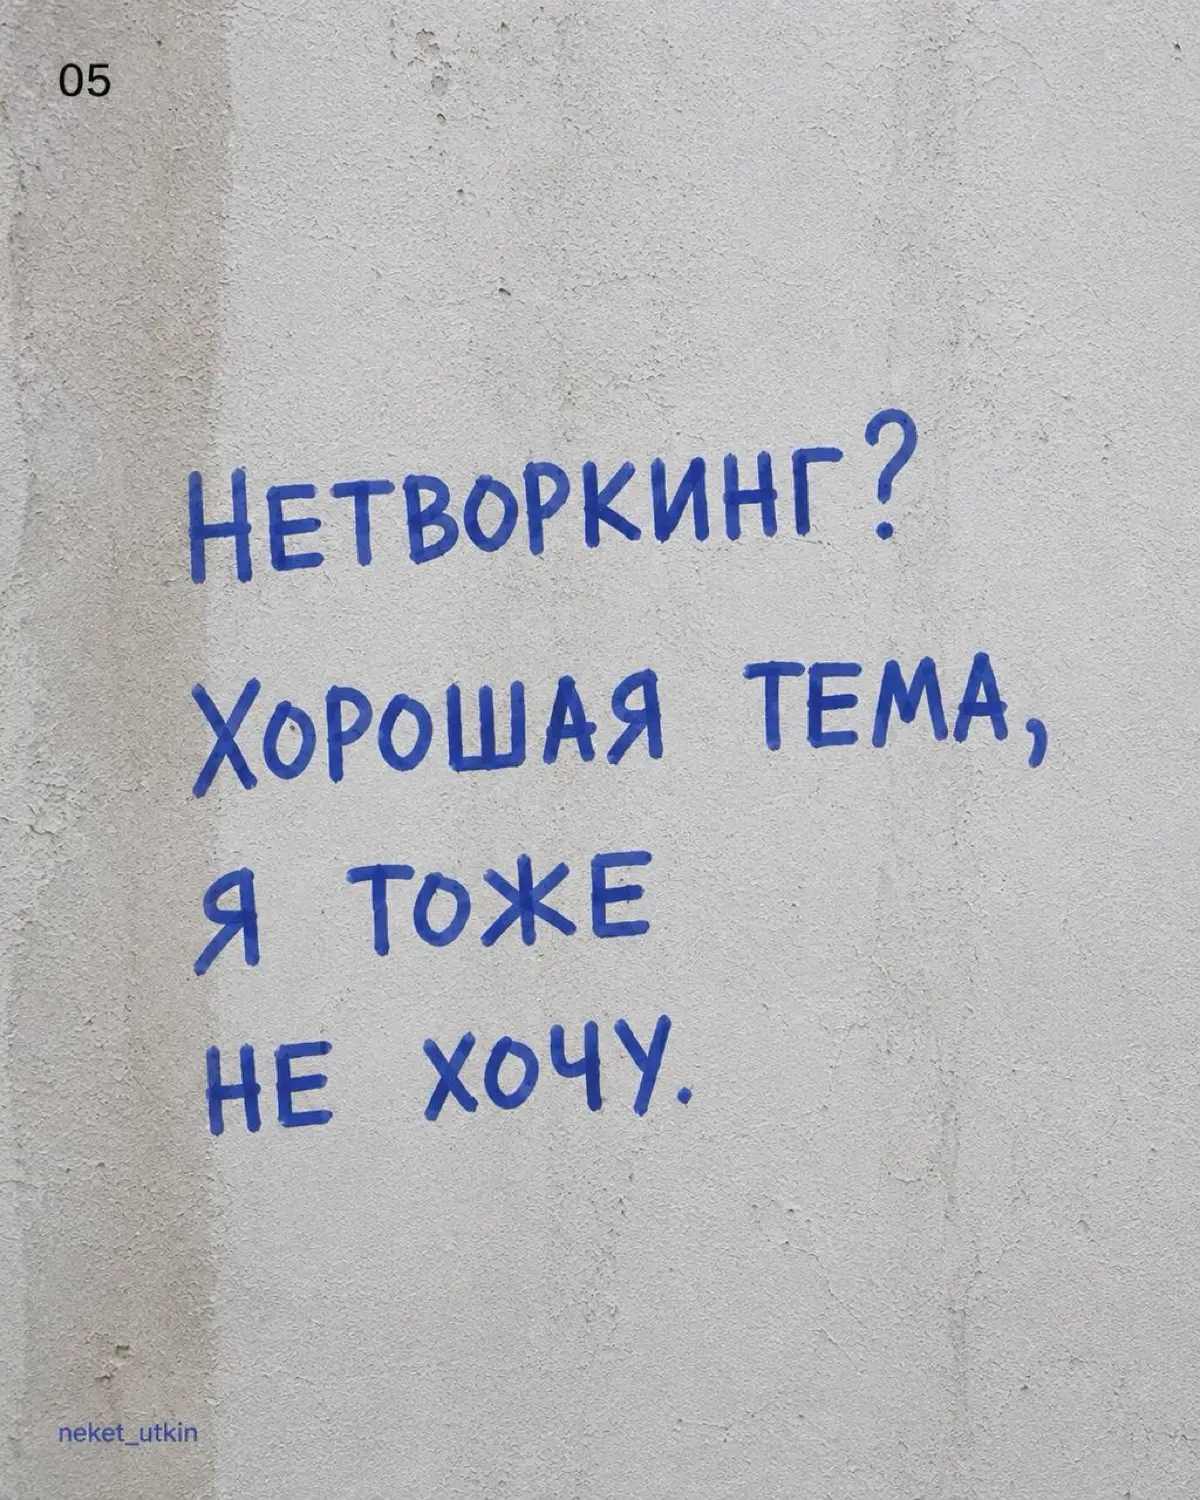 05
НЕТВОРКИНГ?
ХОРОШАЯ ТЕМА,
Я ТОЖЕ
НЕ ХОЧУ.
neket_utkin